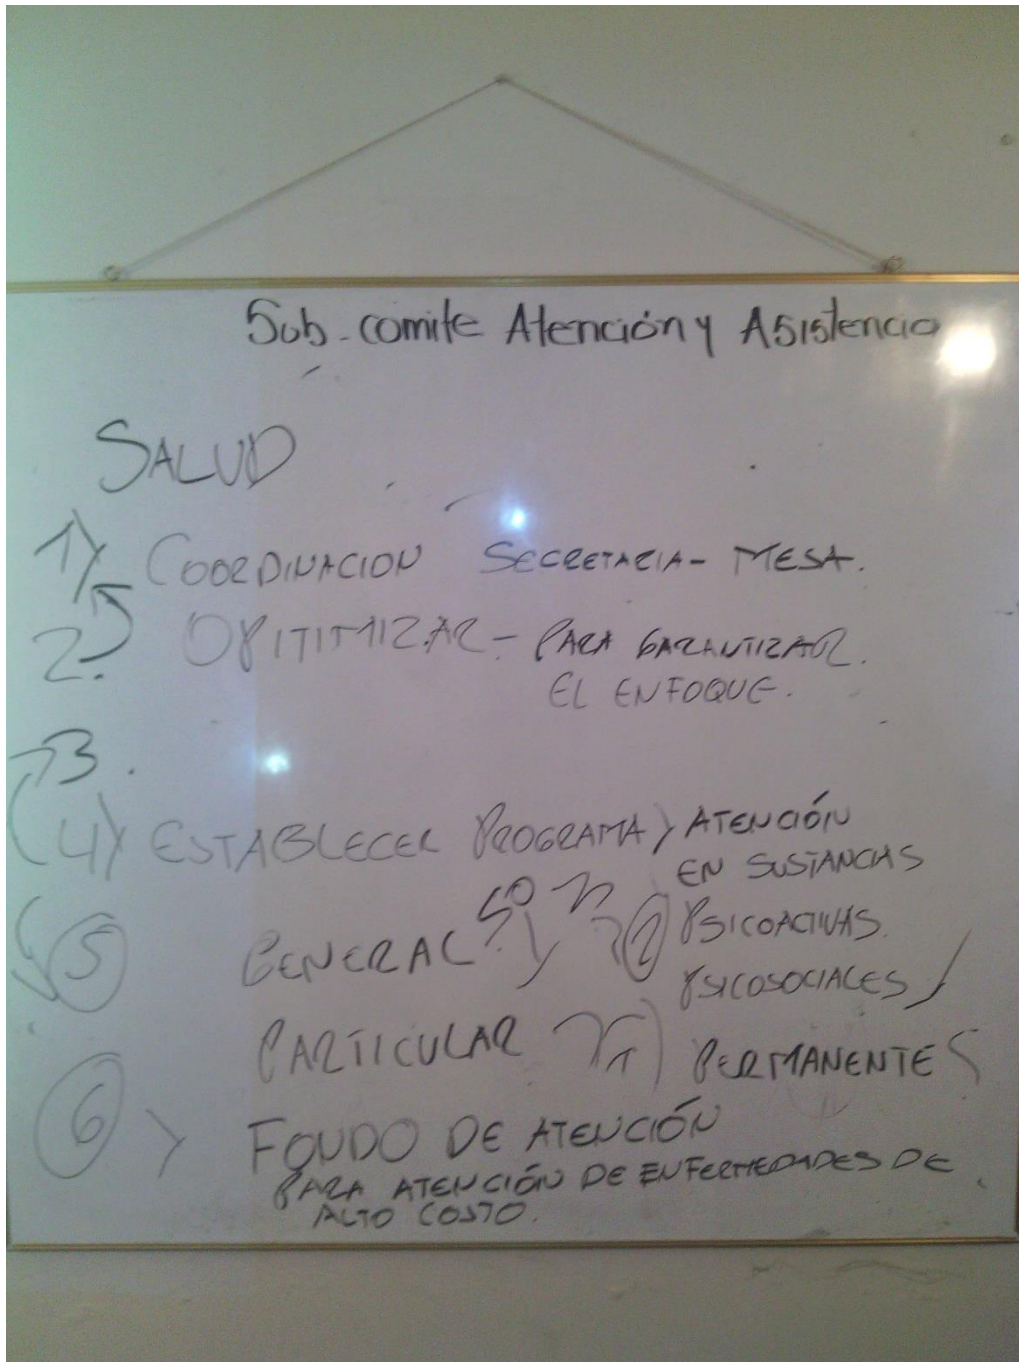 Sub-comite Atención y Asistencia
SALUD
1) COORDINACION SECRETARIA - MESA.
2. OPITIMIZAR - PARA GARANTIZAR
EL ENFOQUE.
3.
4) ESTABLECER PROGRAMA) ATENCIÓN
EN SUSTANCIAS
5 GENERAL 2 PSICOACTIVAS.
PSICOSOCIALES
PARTICULAR 1) PERMANENTE
6 FONDO DE ATENCIÓN
PARA ATENCIÓN DE ENFERMEDADES DE
ALTO COSTO.